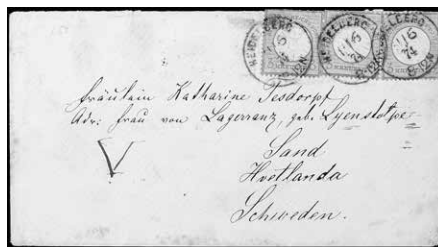 HEIDELBERG
11 6
74
HEIDELBERG
11 6
74
HEIDELBERG
11 6
74
8-12N
Fräulein Katharine Tesdorpf
Adr: Frau von Lagerranz, geb. Lyenstolpe
Sand
Hvetlanda
Schweden.